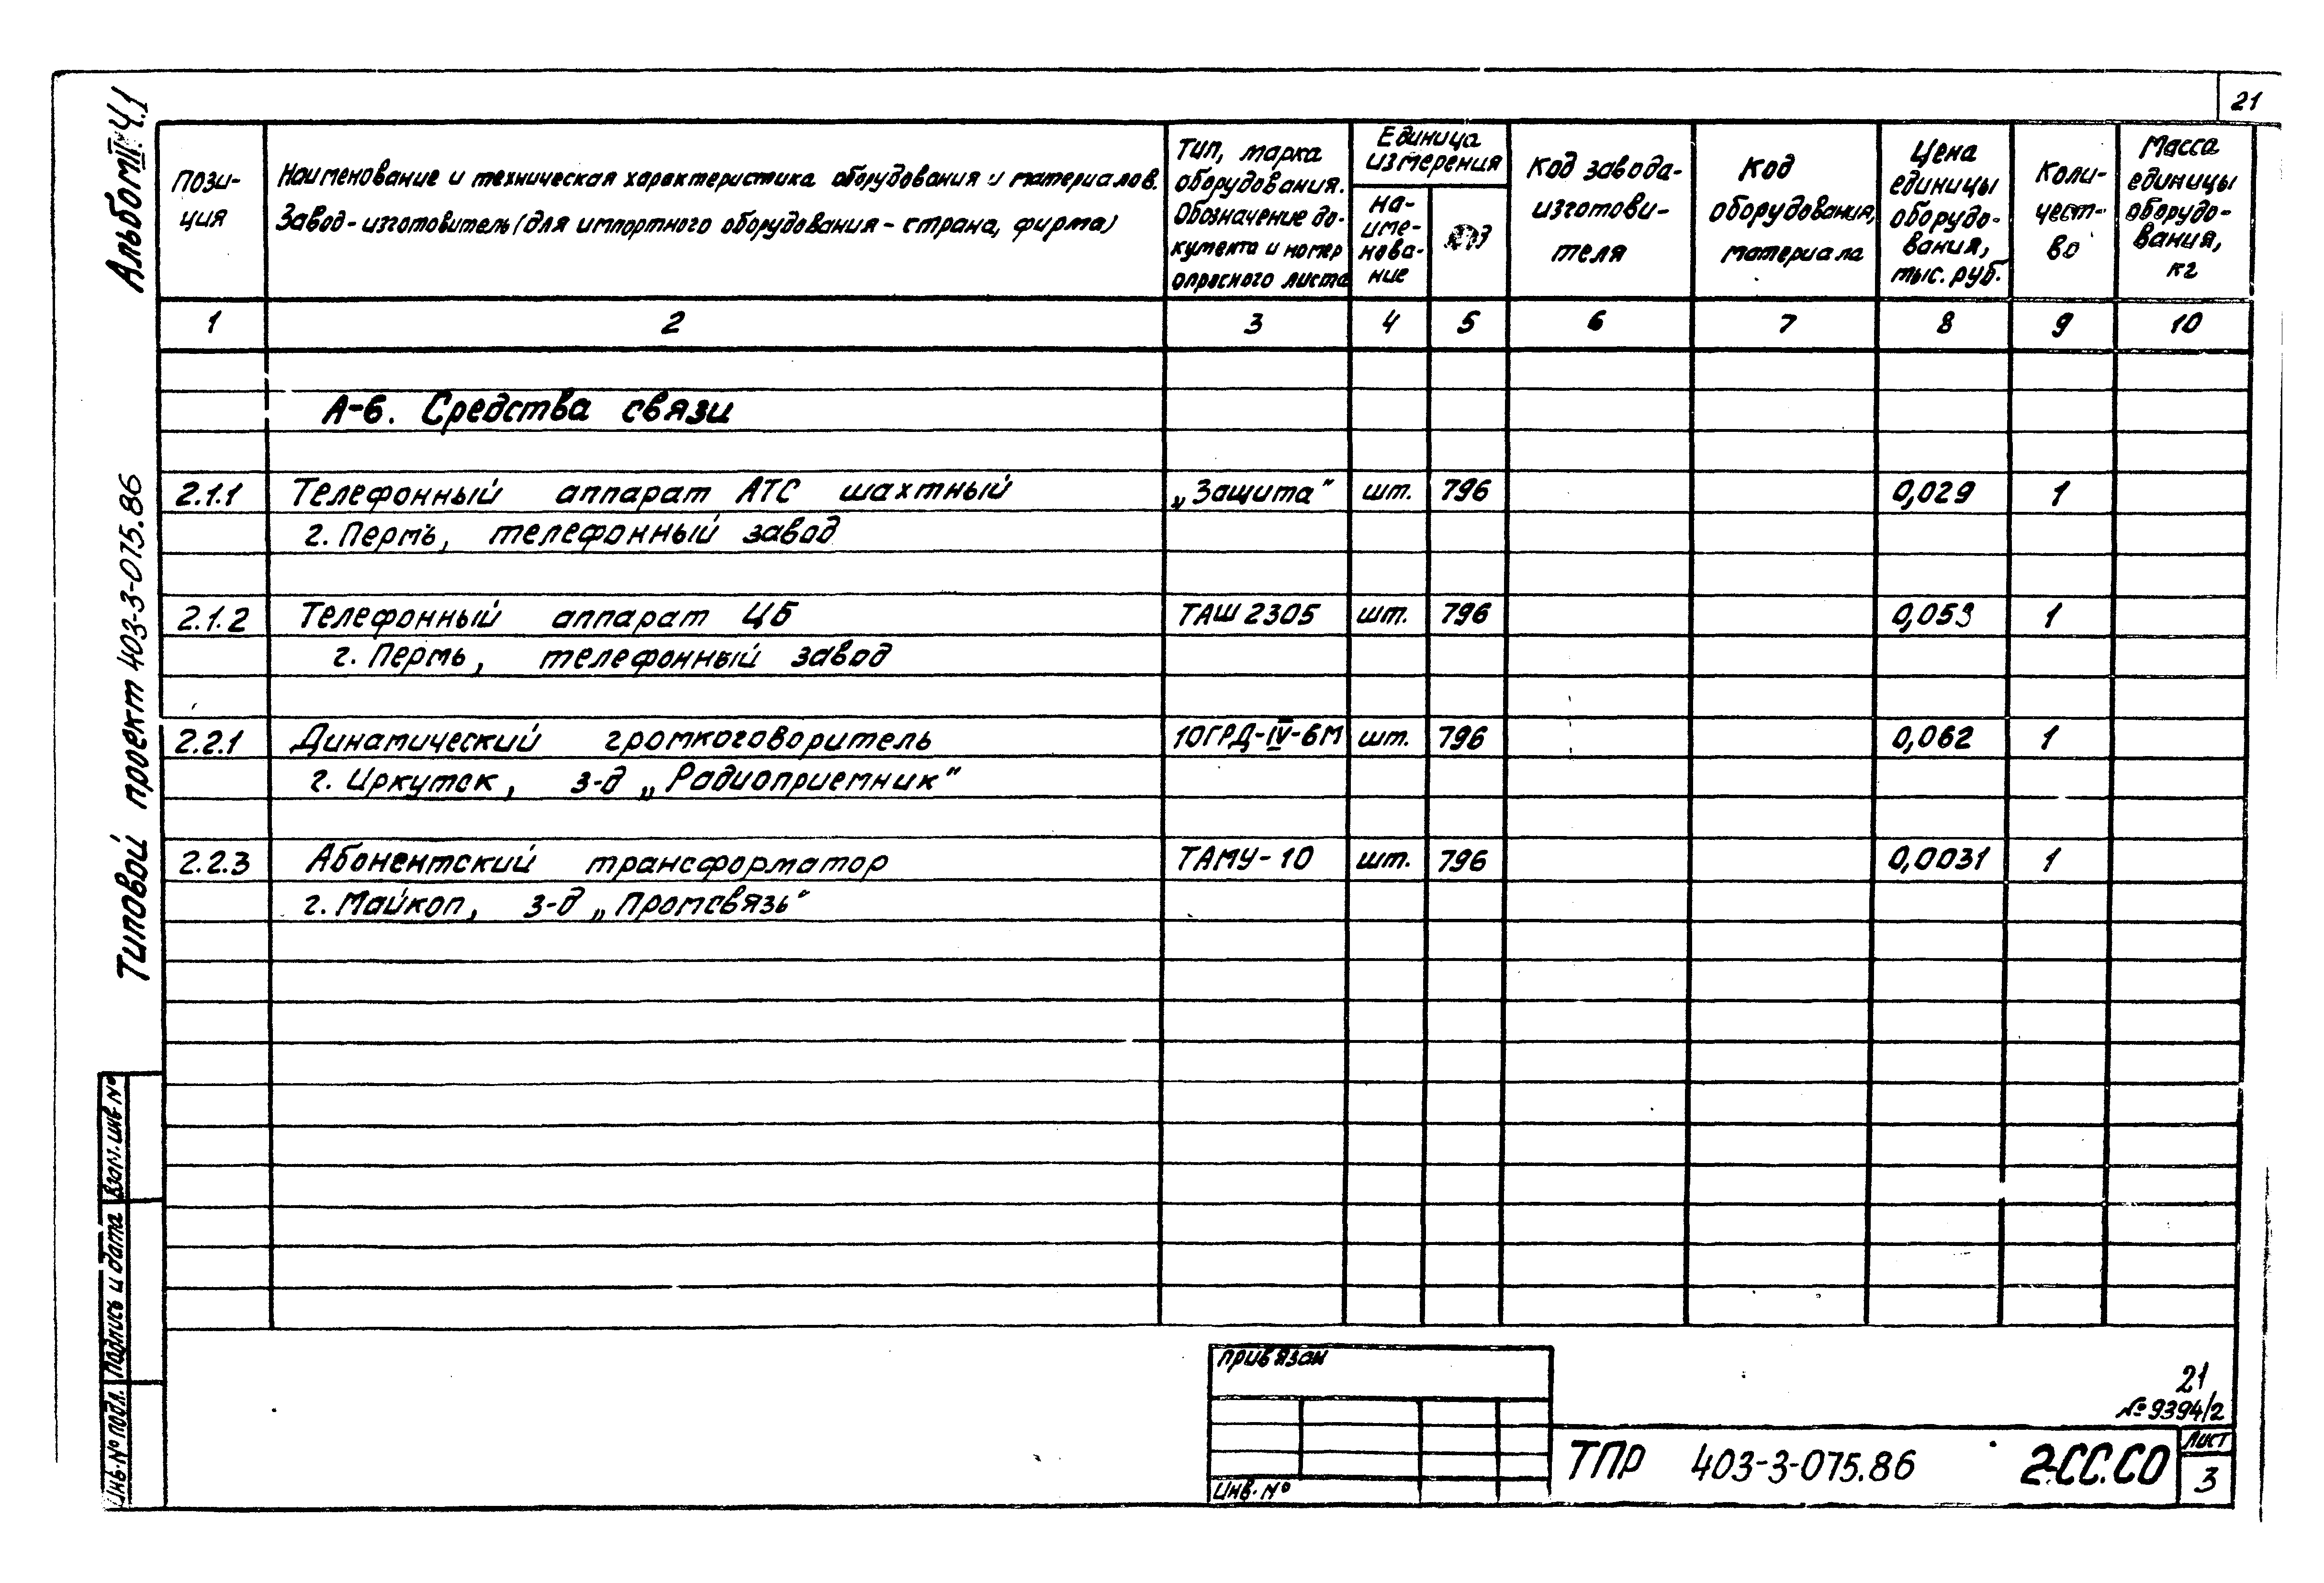 21
Альбом II Ч.1
Типовой проект 403-3-075.86
Пози-
ция
Наименование и техническая характеристика оборудования и материалов.
Завод-изготовитель (для импортного оборудования - страна, фирма)
Тип, марка
оборудования.
Обозначение до-
кумента и номер
опросного листа
Единица
измерения
на-
име-
нова-
ние
код
Код завода-
изготови-
теля
Код
оборудования,
материала
Цена
единицы
оборудо-
вания,
тыс. руб.
Коли-
чест-
во
Масса
единицы
оборудо-
вания,
кг
1 2 3 4 5 6 7 8 9 10
А-6. Средства связи
2.1.1 Телефонный аппарат АТС шахтный „Защита" шт. 796 0,029 1
г. Пермь, телефонный завод
2.1.2 Телефонный аппарат ЦБ ТАШ 2305 шт. 796 0,053 1
г. Пермь, телефонный завод
2.2.1 Динамический громкоговоритель 10ГРД-IV-6М шт. 796 0,062 1
г. Иркутск, з-д „Радиоприемник"
2.2.3 Абонентский трансформатор ТАМУ-10 шт. 796 0,0031 1
г. Майкоп, з-д „Промсвязь"
Взам. инв №
Подпись и дата
Инв. № подл.
Привязан
Инв. №
21
№ 9394/2
ТПР 403-3-075.86 2-СС.СО
Лист
3